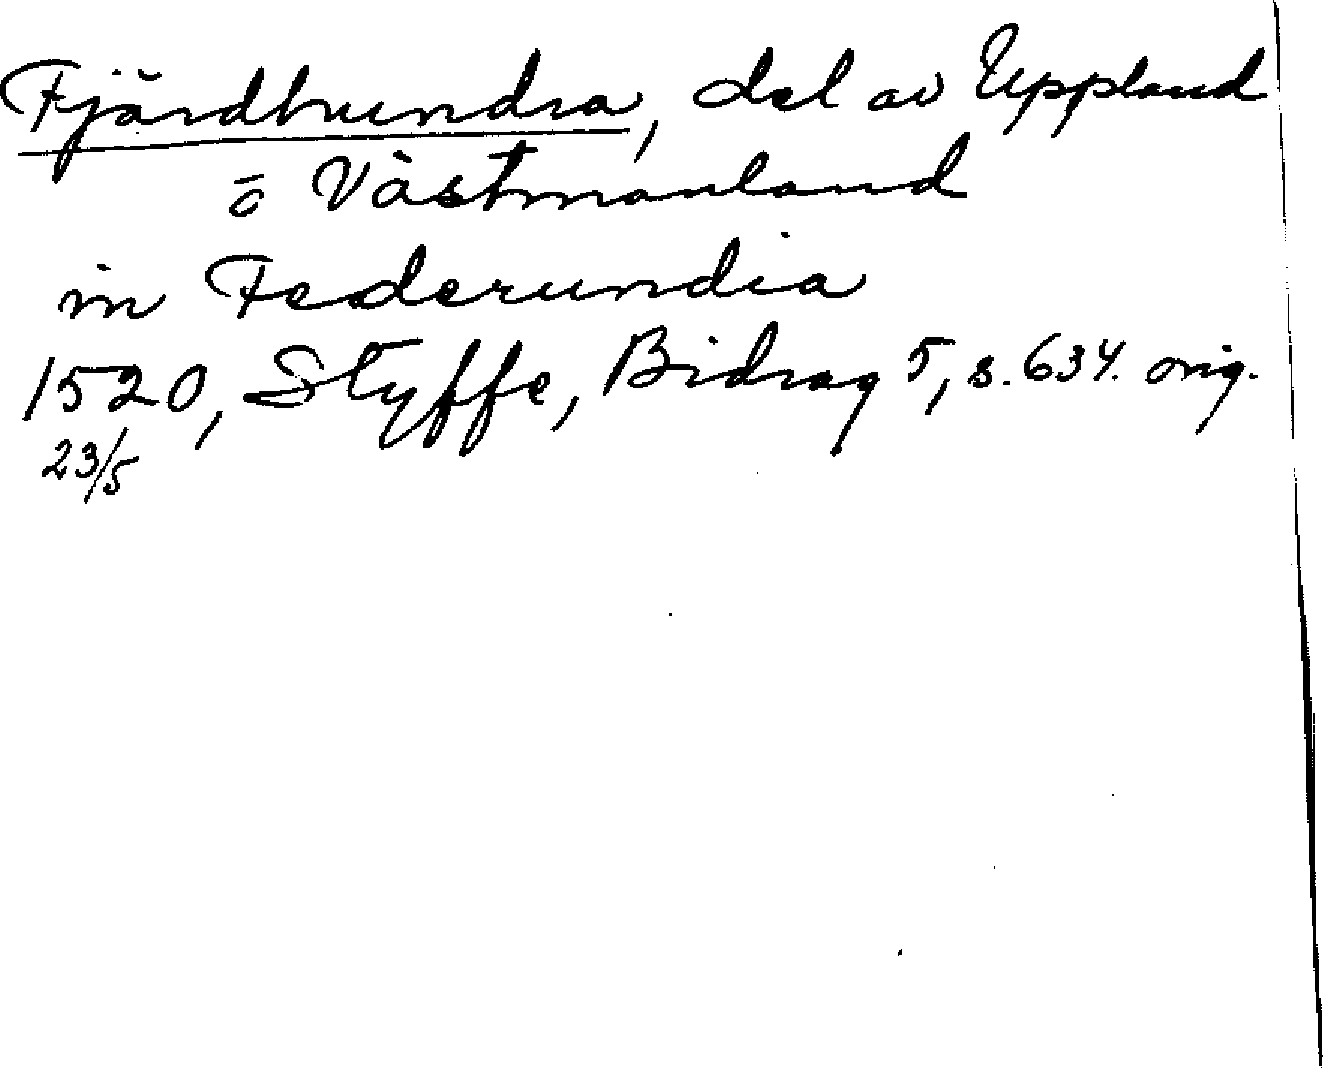 Fjärdhundra, del av Uppland
ō Västmanland
in Federundia
1520, Styffe, Bidrag 5, s. 634. orig.
23/5